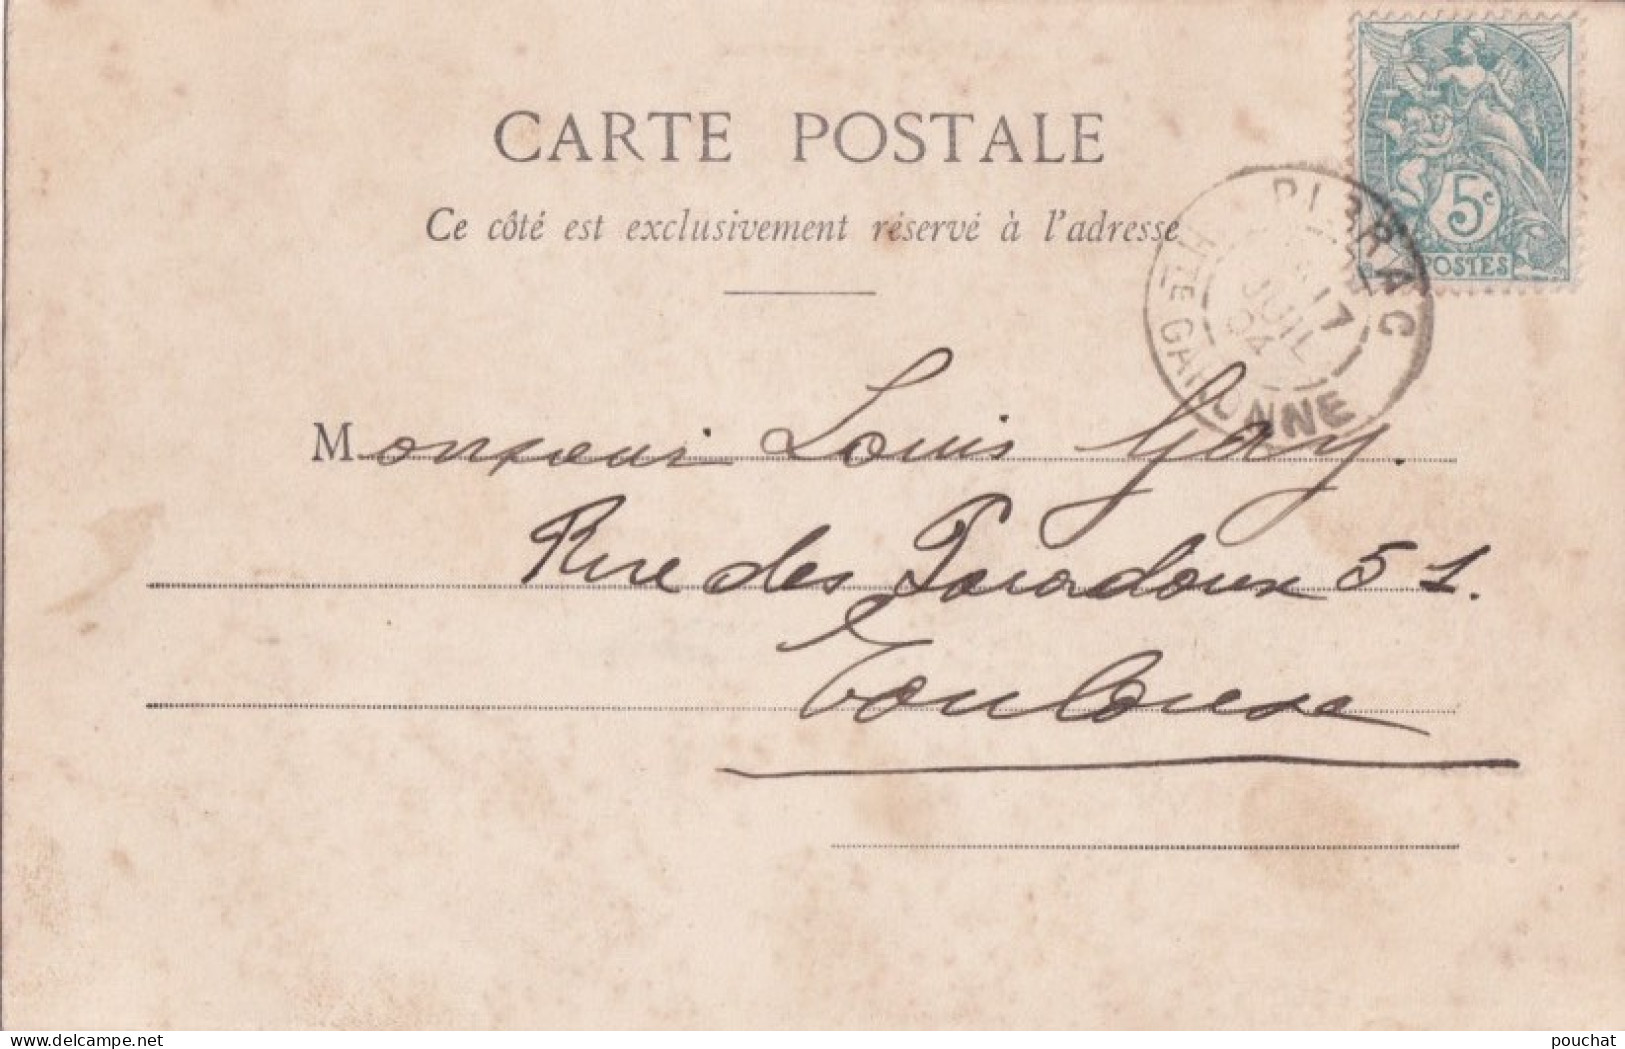 CARTE POSTALE
Ce côté est exclusivement réservé à l'adresse
5c
POSTES
PIBRAC
17
JUIL
04
HTE GARONNE
Monsieur Louis Gay.
Rue des Paradoux 51.
Toulouse
delcampe.net
pouchat